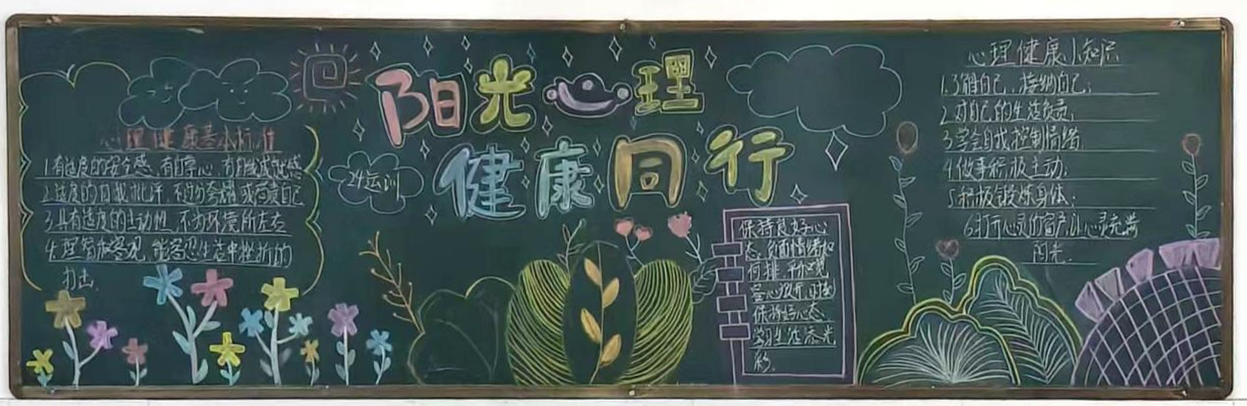 阳光心理
健康同行
24运训
心理健康基本标准
1.有适度的安全感,有自尊心,有成就感
2.适度的自我批评,不过分夸耀或苛责自己
3.具有适度的主动性,不为环境所左右
4.理智 客观,能 忍生活中挫折的
打击.
保持良好心
态,负面情绪如
何排

保持好心态,
学习生活添光
彩.
心理健康小知识
1.了解自己、接纳自己;
2.对自己的生活负责;
3.学会自我控制情绪
4.做事积极主动;
5.积极锻炼身体;
6.打开心灵的窗户,让心灵充满
阳光.